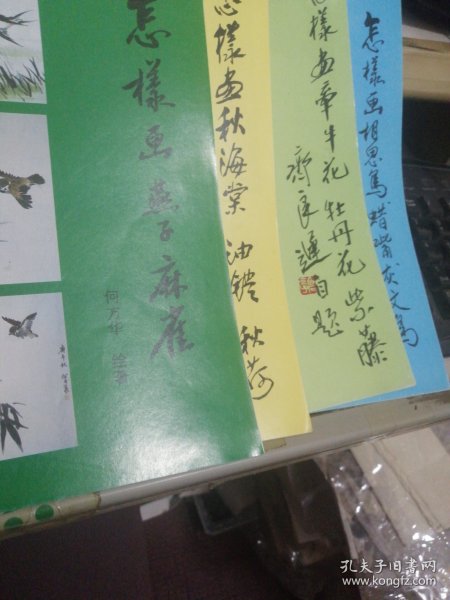 怎樣画燕子麻雀
何方华 绘著
怎樣画秋海棠 油镫 秋荷
怎樣画牵牛花 牡丹花 紫藤
齊良遲自题
怎樣画相思鸟蜡嘴灰文鸟
孔夫子旧书网
www.kongfz.com